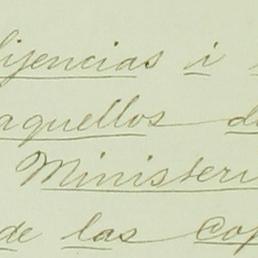 lijencias i
aquellos de
Ministeri
de las Cop